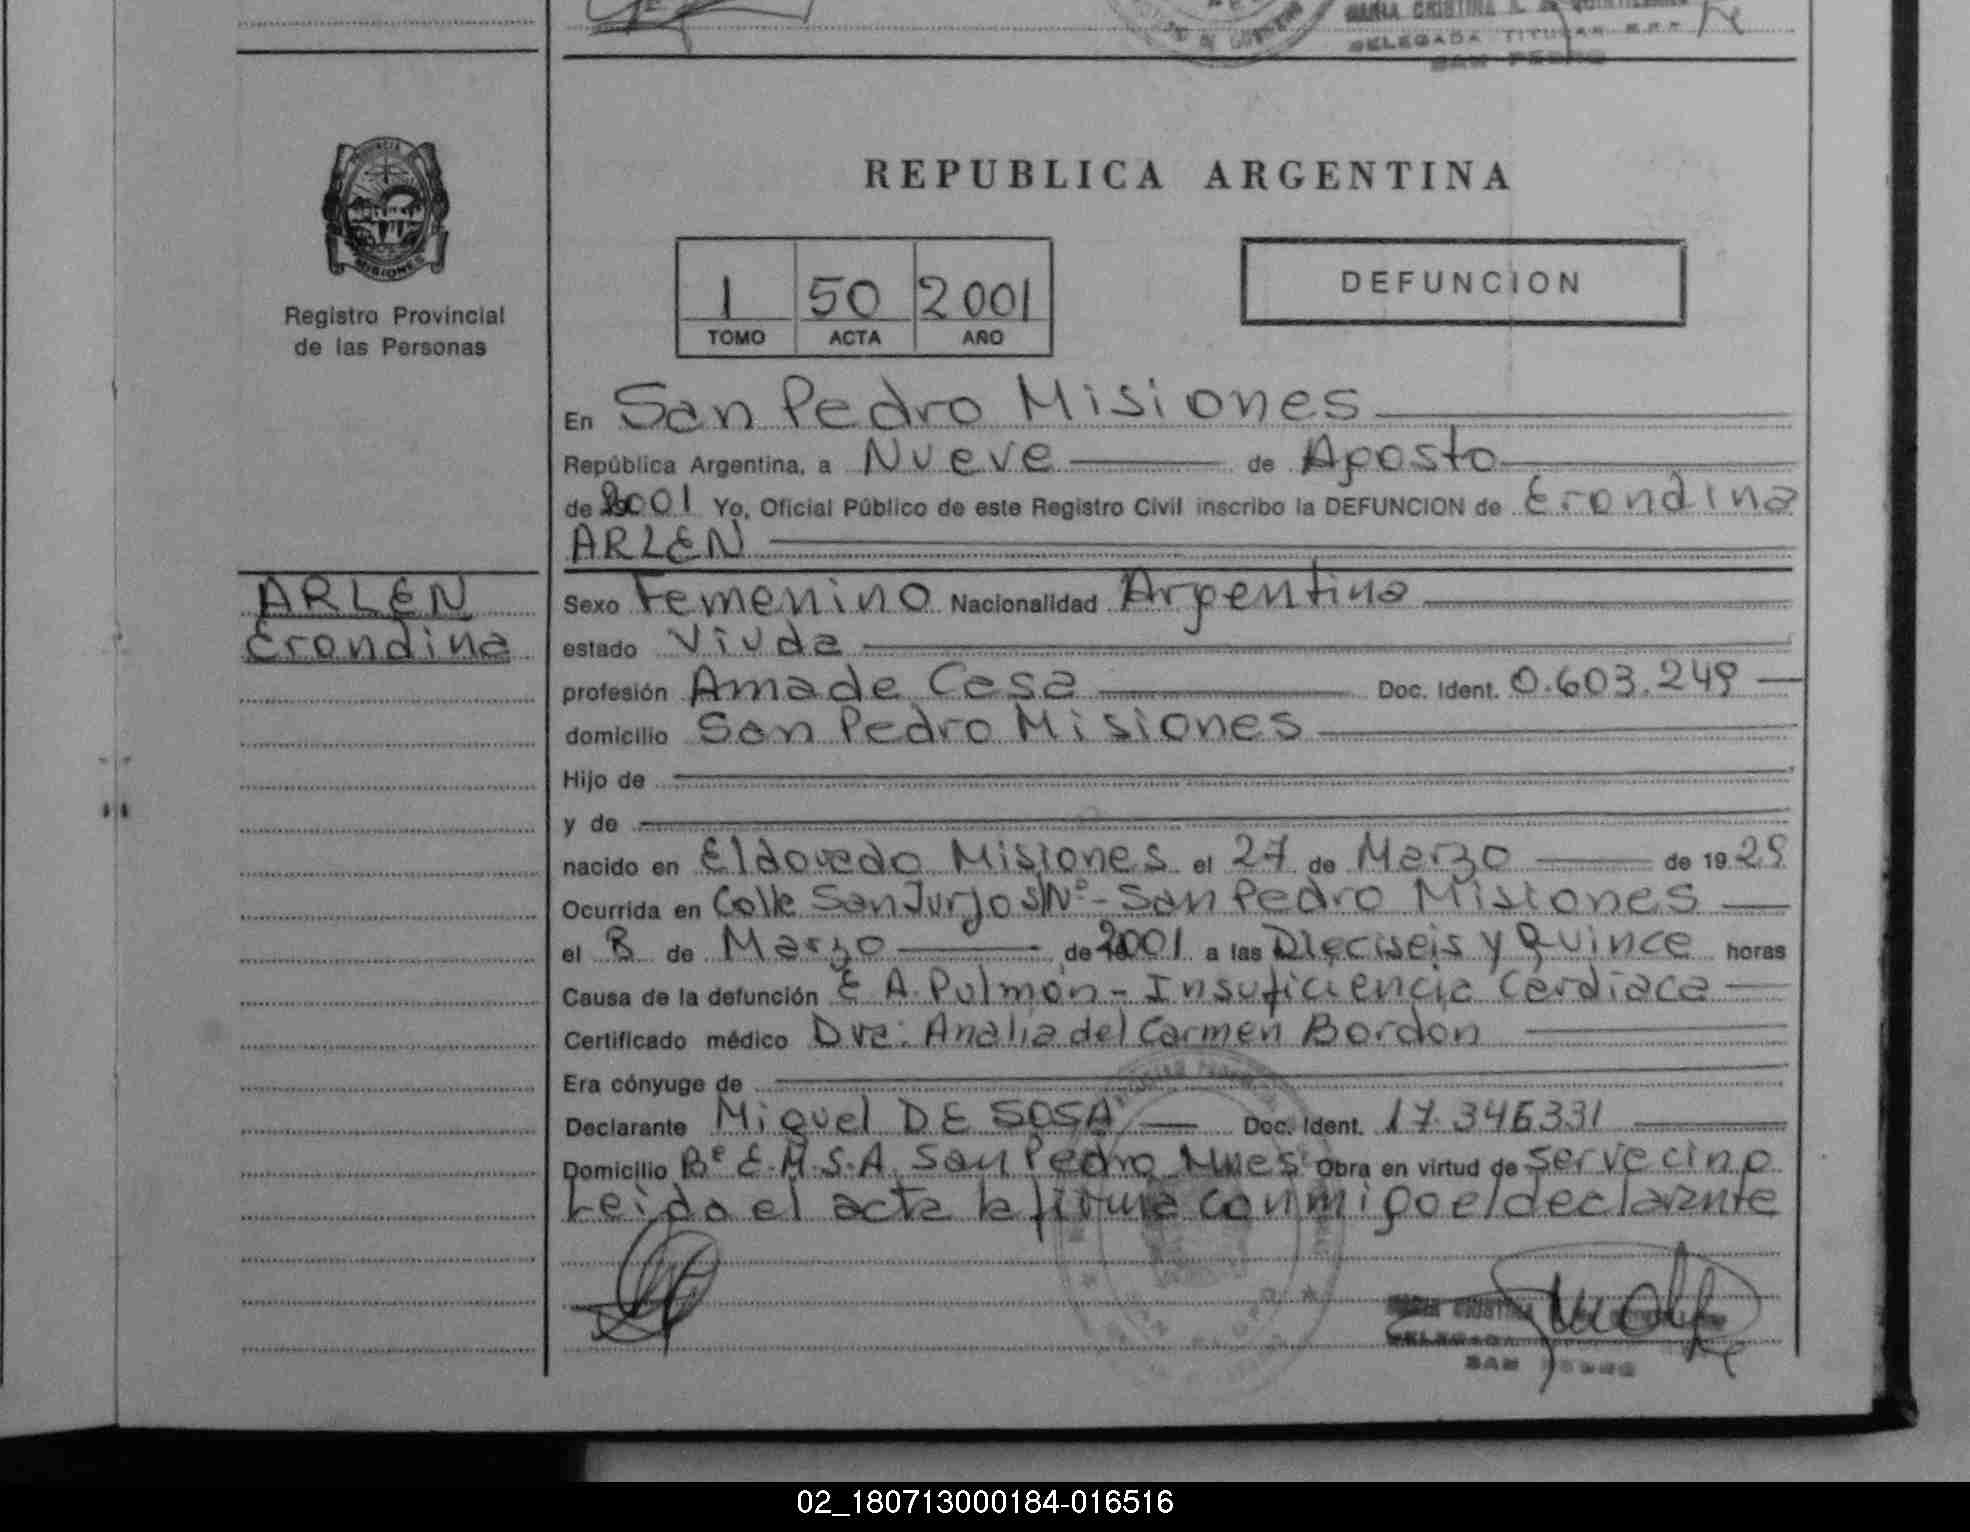 MARIA CRISTINA
DELEGADA TITULAR
SAN PEDRO
PROVINCIA
MISIONES
Registro Provincial
de las Personas
REPUBLICA ARGENTINA
1 50 2001
TOMO ACTA AÑO
DEFUNCION
En San Pedro Misiones
República Argentina, a Nueve de Agosto
de 2001 Yo, Oficial Público de este Registro Civil inscribo la DEFUNCION de Erondina
ARLEN
ARLEN
Erondina
Sexo Femenino Nacionalidad Argentina
estado Viuda
profesión Ama de Casa Doc. Ident. 0.603.249
domicilio San Pedro Misiones
Hijo de
y de
nacido en Eldorado Misiones el 27 de Marzo de 1929
Ocurrida en Calle San Jurjo S/Nº - San Pedro Misiones
el 8 de Marzo de 2001 a las Dieciseis y Quince horas
Causa de la defunción E A. Pulmón - Insuficiencia Cardiaca
Certificado médico Dra: Analia del Carmen Bordon
Era cónyuge de
Declarante Miguel DE SOSA Doc. Ident. 17.346331
Domicilio Bº E.M.S.A. San Pedro Mnes Obra en virtud de ser vecino
Leida el acta la firma conmigo el declarante
MARIA CRISTINA
DELEGADA
SAN PEDRO
02_180713000184-016516